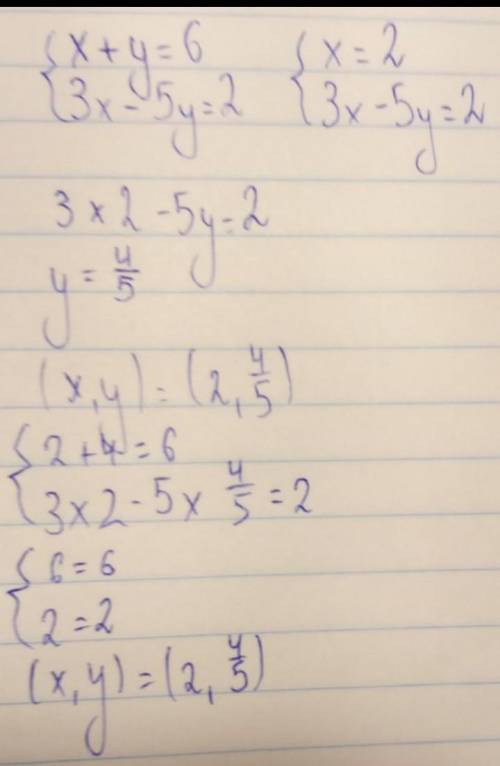 {x+y=6 {x=2
{3x-5y=2 {3x-5y=2
3×2-5y=2
y=4/5
(x,y)=(2,4/5)
{2+4=6
{3×2-5×4/5=2
{6=6
{2=2
(x,y)=(2,4/5)